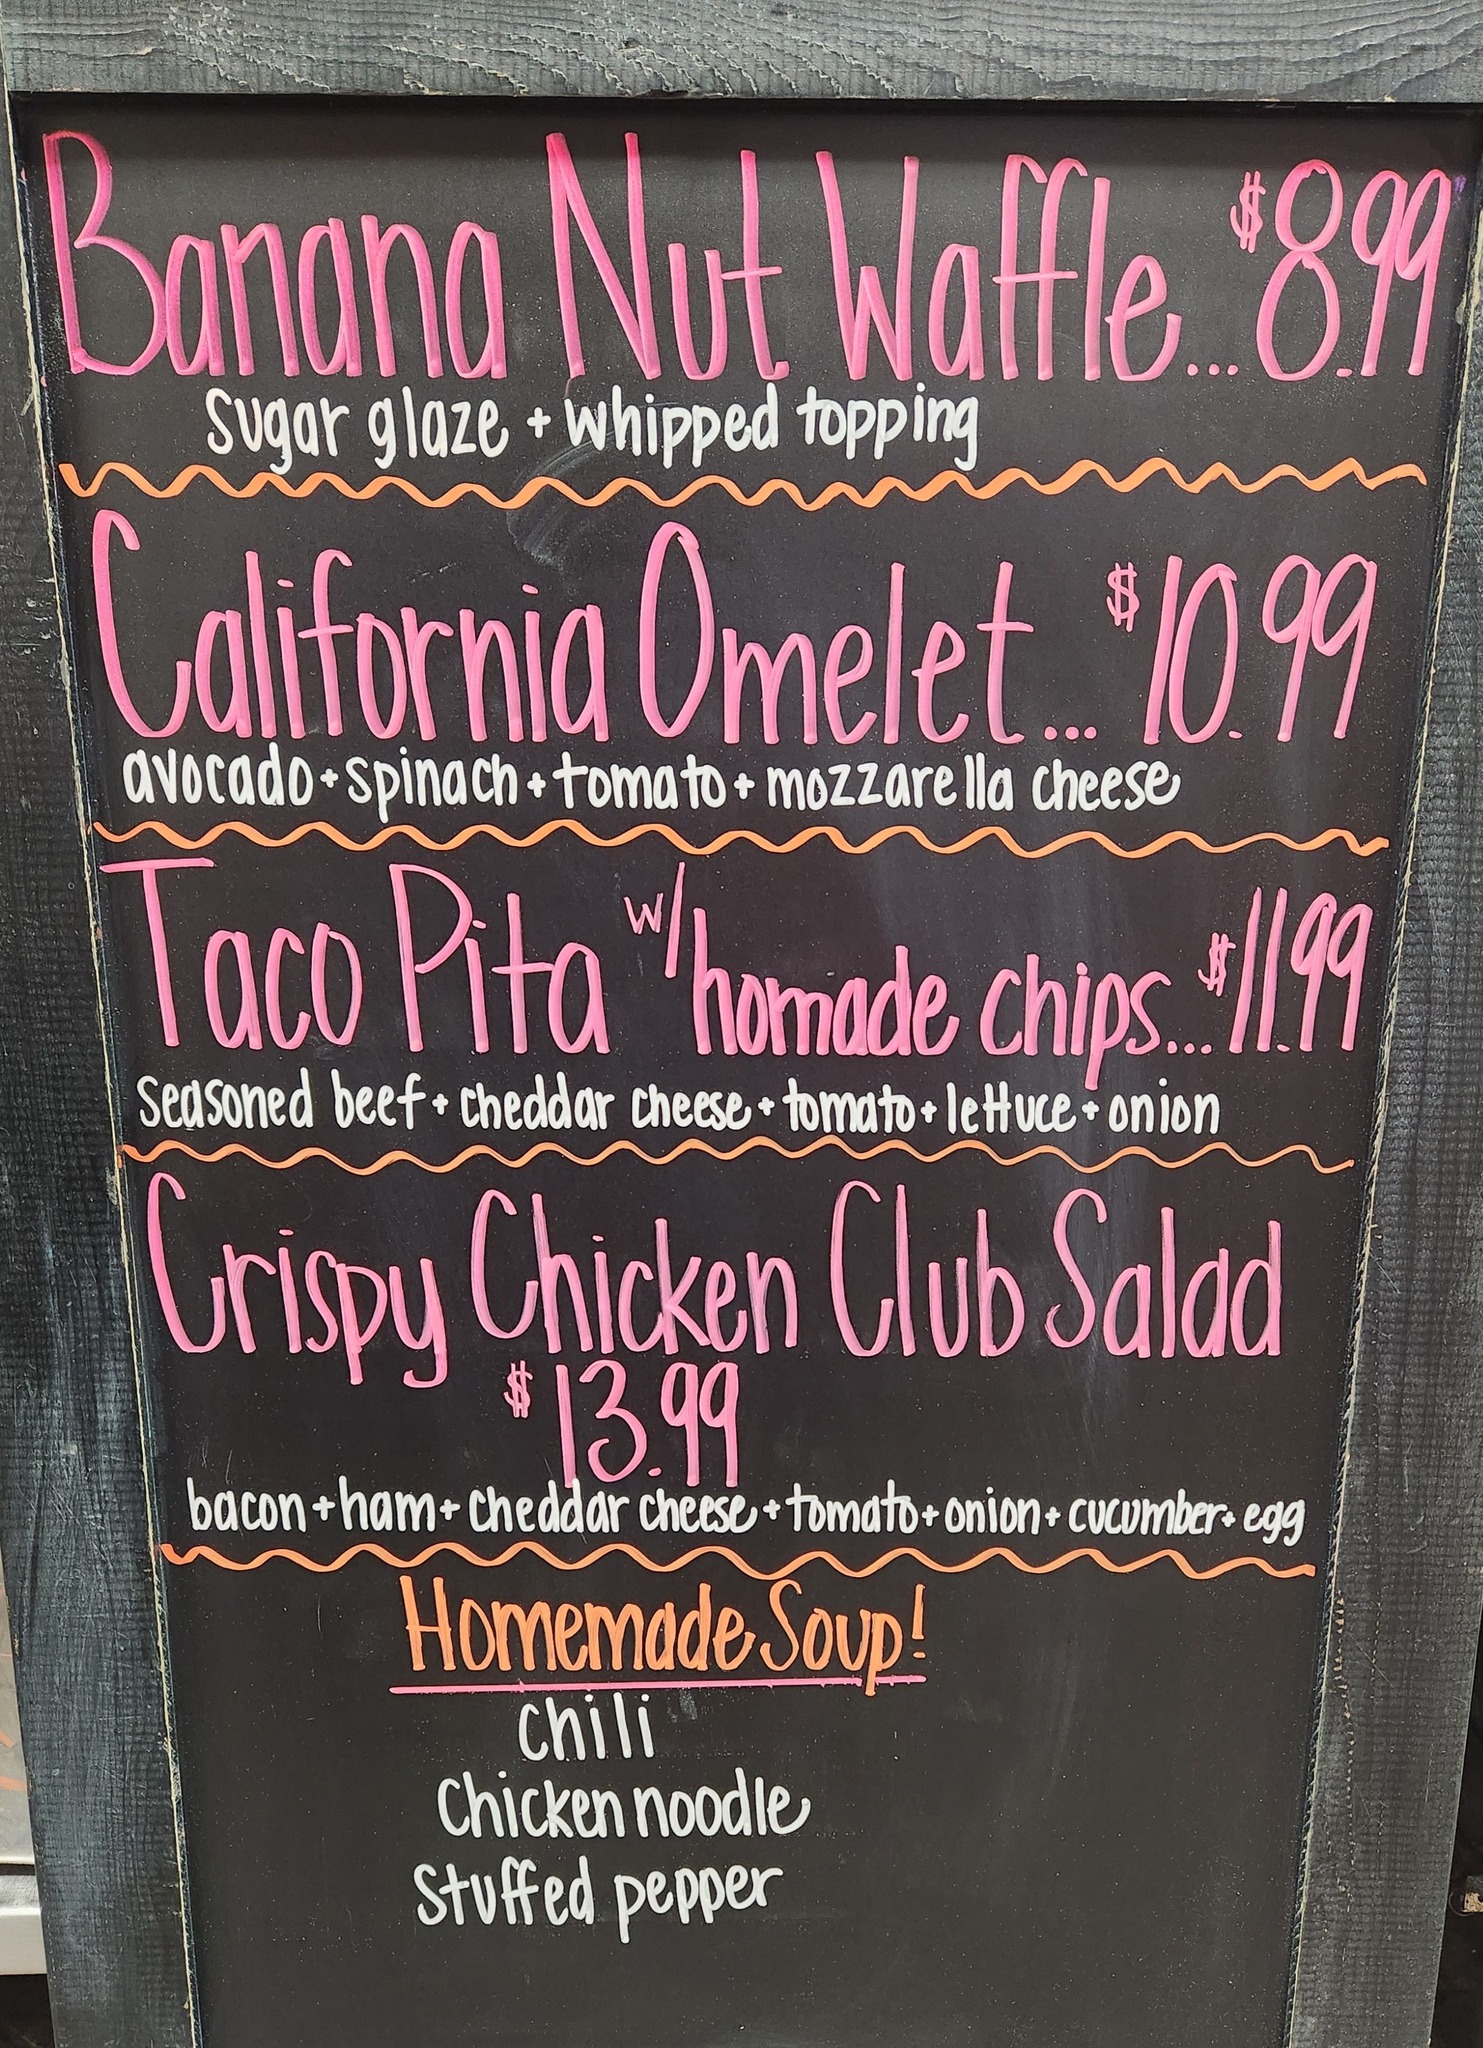 Banana Nut Waffle...$8.99
sugar glaze + whipped topping
California Omelet... $10.99
avocado + spinach + tomato + mozzarella cheese
Taco Pita w/ homade chips...$11.99
seasoned beef + cheddar cheese + tomato + lettuce + onion
Crispy Chicken Club Salad
$13.99
bacon + ham + cheddar cheese + tomato + onion + cucumber + egg
Homemade Soup!
chili
Chicken noodle
Stuffed pepper